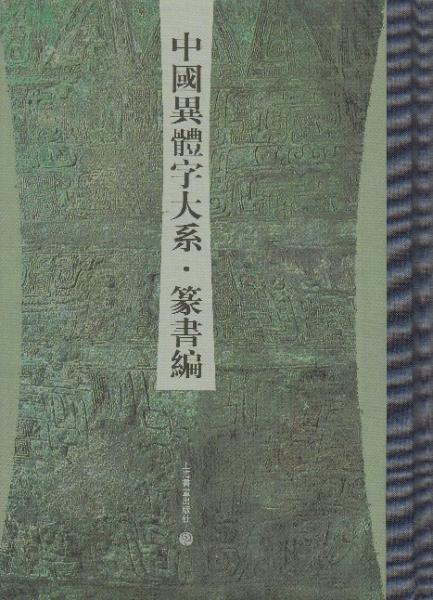 中國異體字大系·篆書編
上海書畫出版社